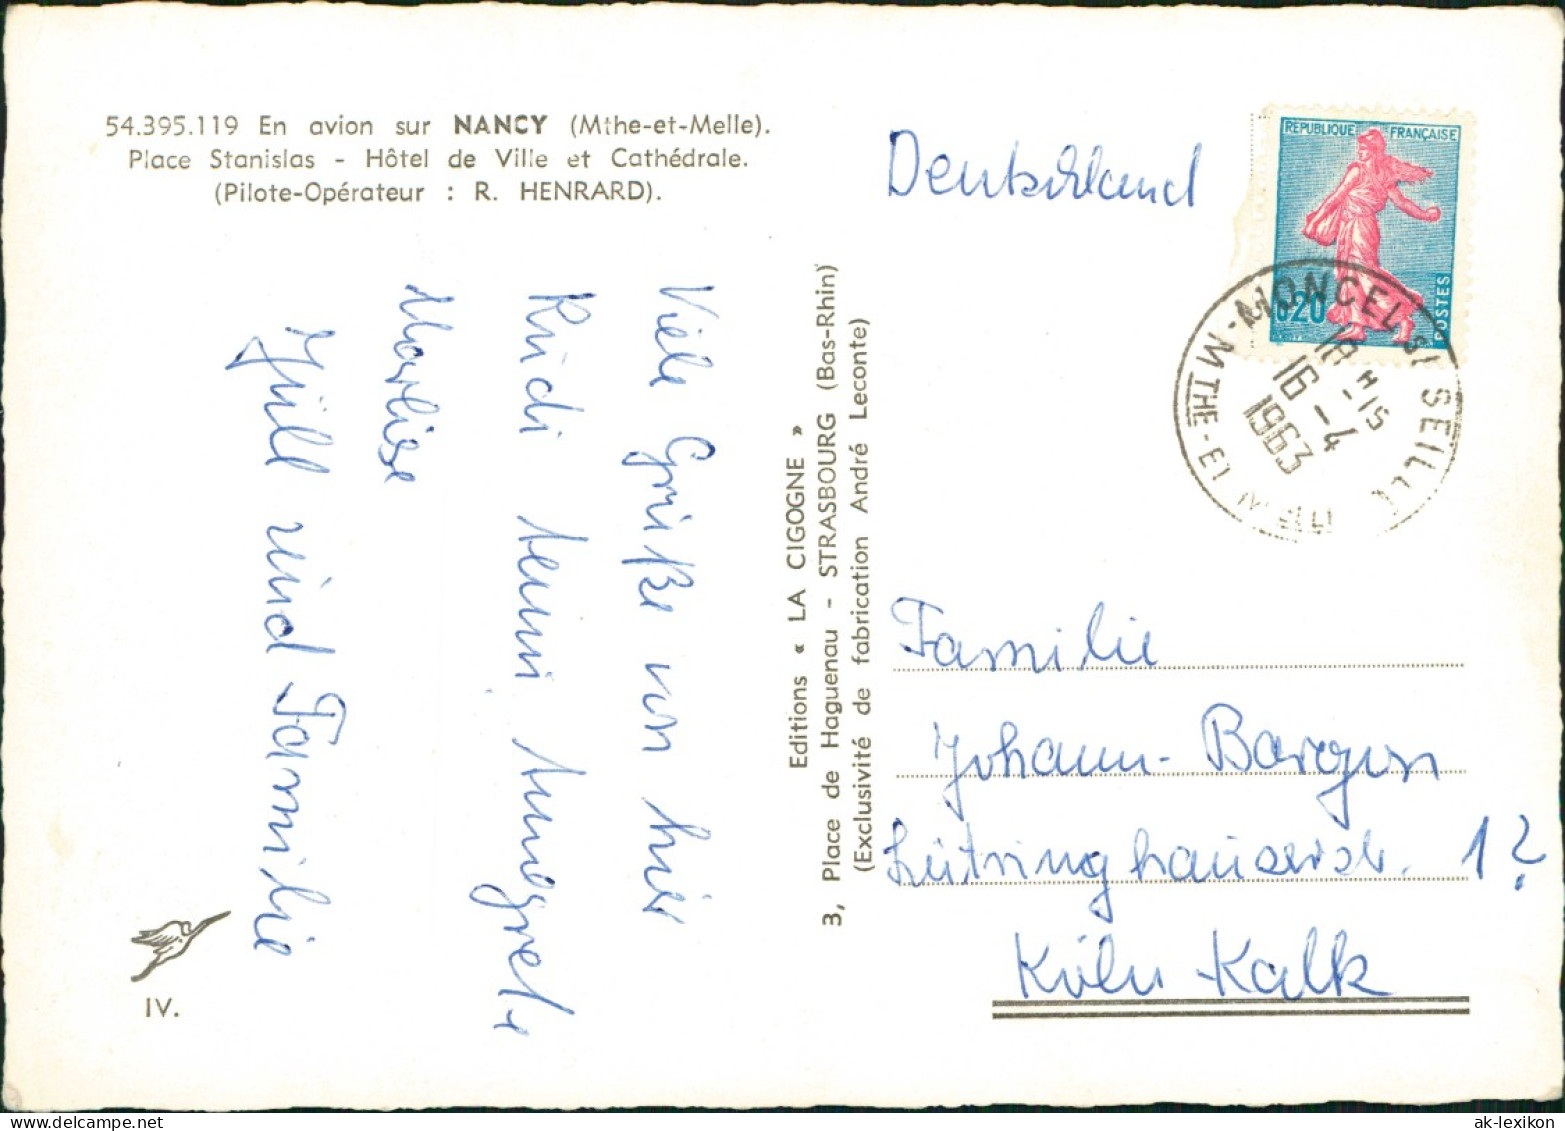 54.395.119 En avion sur NANCY (Mthe-et-Melle).
Place Stanislas - Hôtel de Ville et Cathédrale.
(Pilote-Opérateur : R. HENRARD).
Viele Grüße von hier
Rudi Annegrete
Marliese
Jüll und Familie
IV.
Editions « LA CIGOGNE »
3, Place de Haguenau - STRASBOURG (Bas-Rhin)
(Exclusivité de fabrication André Leconte)
Deutschland
REPUBLIQUE FRANÇAISE
0,20
POSTES
MONCEL S/ SEILLE
18 H 15
16 - 4
1963
MTHE-ET
Familie
Johann-Bargon
Lüttringhauserstr. 1?
Köln-Kalk
ak-lexikon